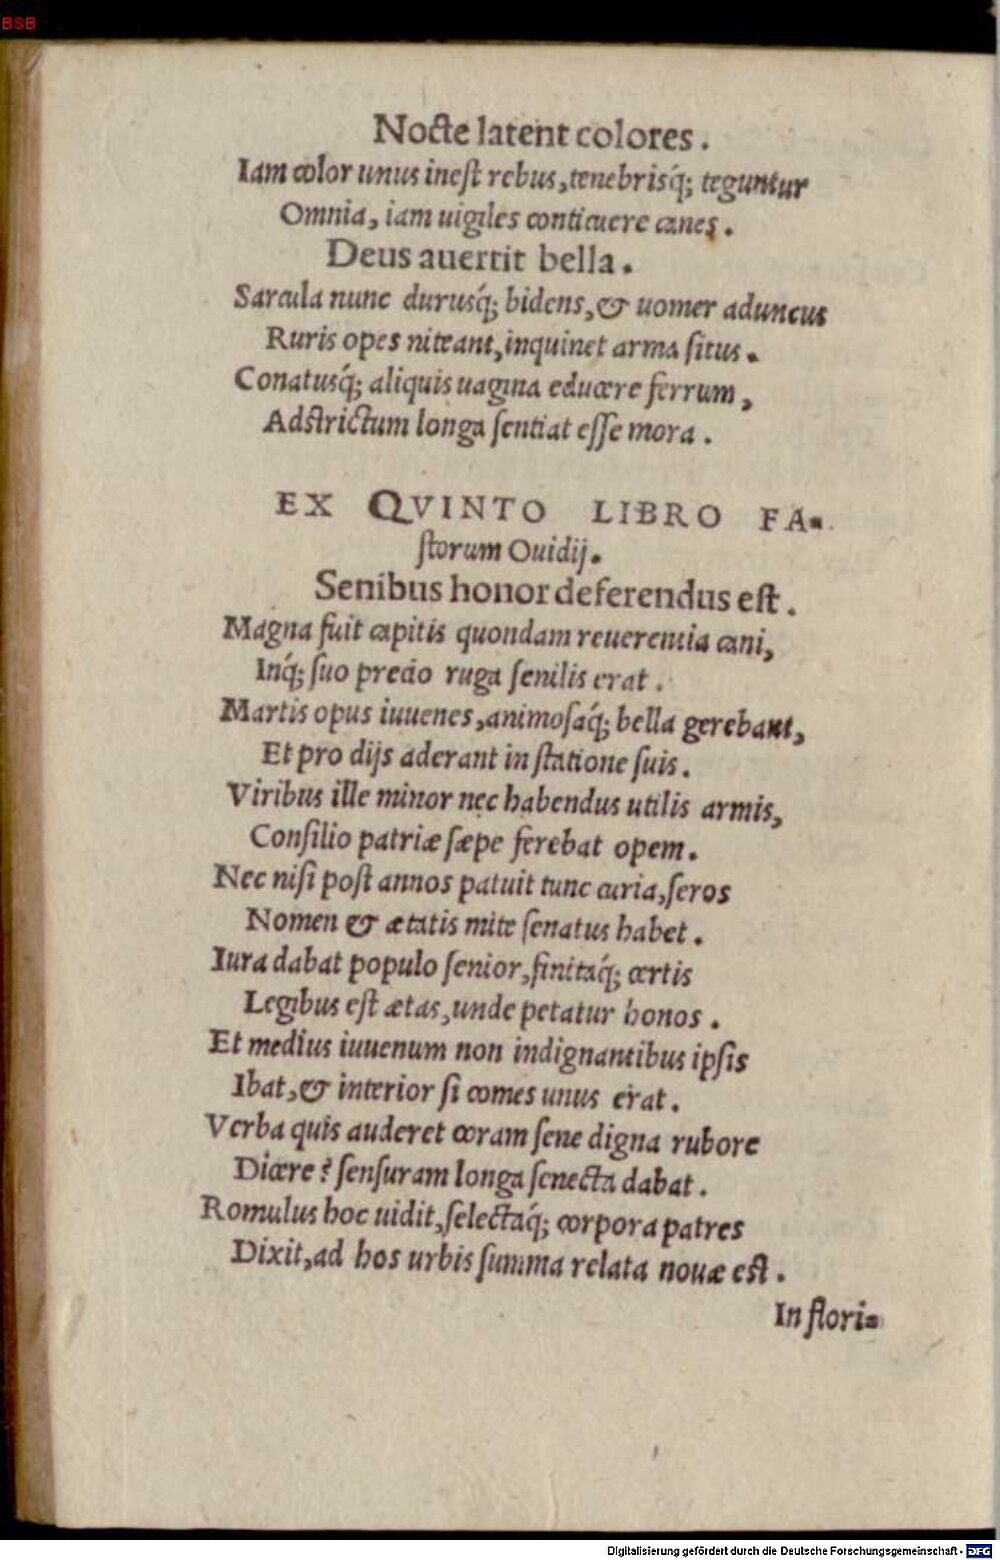 BSB
Nocte latent colores.
Iam color unus inest rebus, tenebrisq́; teguntur
Omnia, iam uigiles conticuere canes.
Deus auertit bella.
Sarcula nunc durusq́; bidens, & uomer aduncus
Ruris opes niteant, inquinet arma situs.
Conatusq́; aliquis uagina educere ferrum,
Adstrictum longa sentiat esse mora.
EX QVINTO LIBRO FA-
storum Ouidij.
Senibus honor deferendus est.
Magna fuit capitis quondam reuerentia cani,
Inq́; suo precio ruga senilis erat.
Martis opus iuuenes, animosaq́; bella gerebant,
Et pro dijs aderant in statione suis.
Viribus ille minor nec habendus utilis armis,
Consilio patriæ sæpe ferebat opem.
Nec nisi post annos patuit tunc curia, seros
Nomen & ætatis mite senatus habet.
Iura dabat populo senior, finitaq́; certis
Legibus est ætas, unde petatur honos.
Et medius iuuenum non indignantibus ipsis
Ibat, & interior si comes unus erat.
Verba quis auderet coram sene digna rubore
Dicere? sensuram longa senecta dabat.
Romulus hoc uidit, selectaq́; corpora patres
Dixit, ad hos urbis summa relata nouæ est.
In flori-
Digitalisierung gefördert durch die Deutsche Forschungsgemeinschaft - DFG